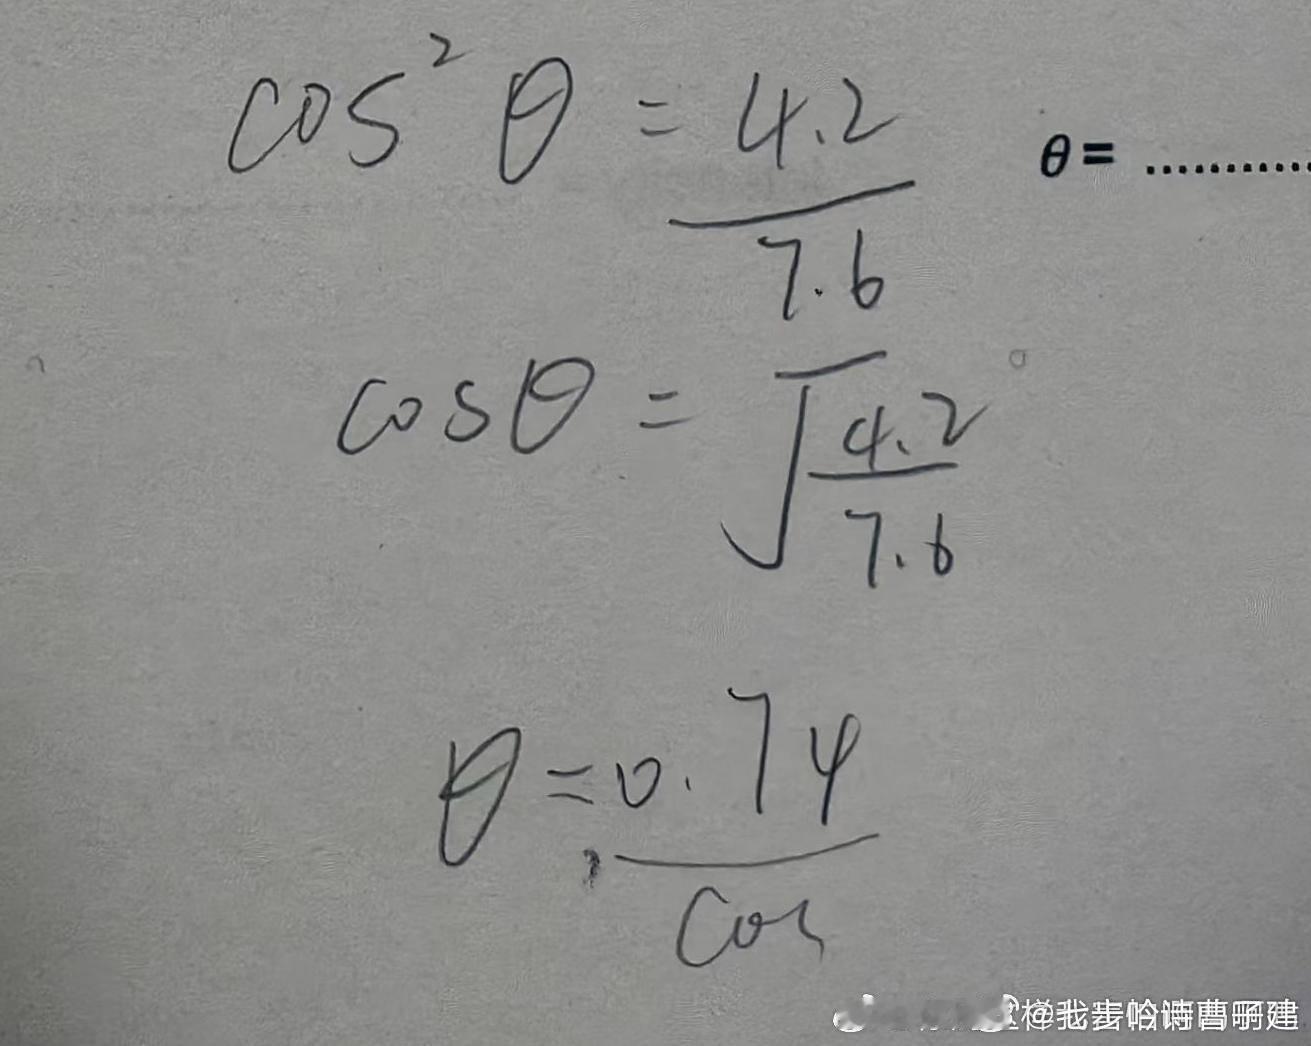 cos² θ = 4.2/7.6
θ = ............
cosθ = √(4.2/7.6)
θ = 0.74/cos
@我